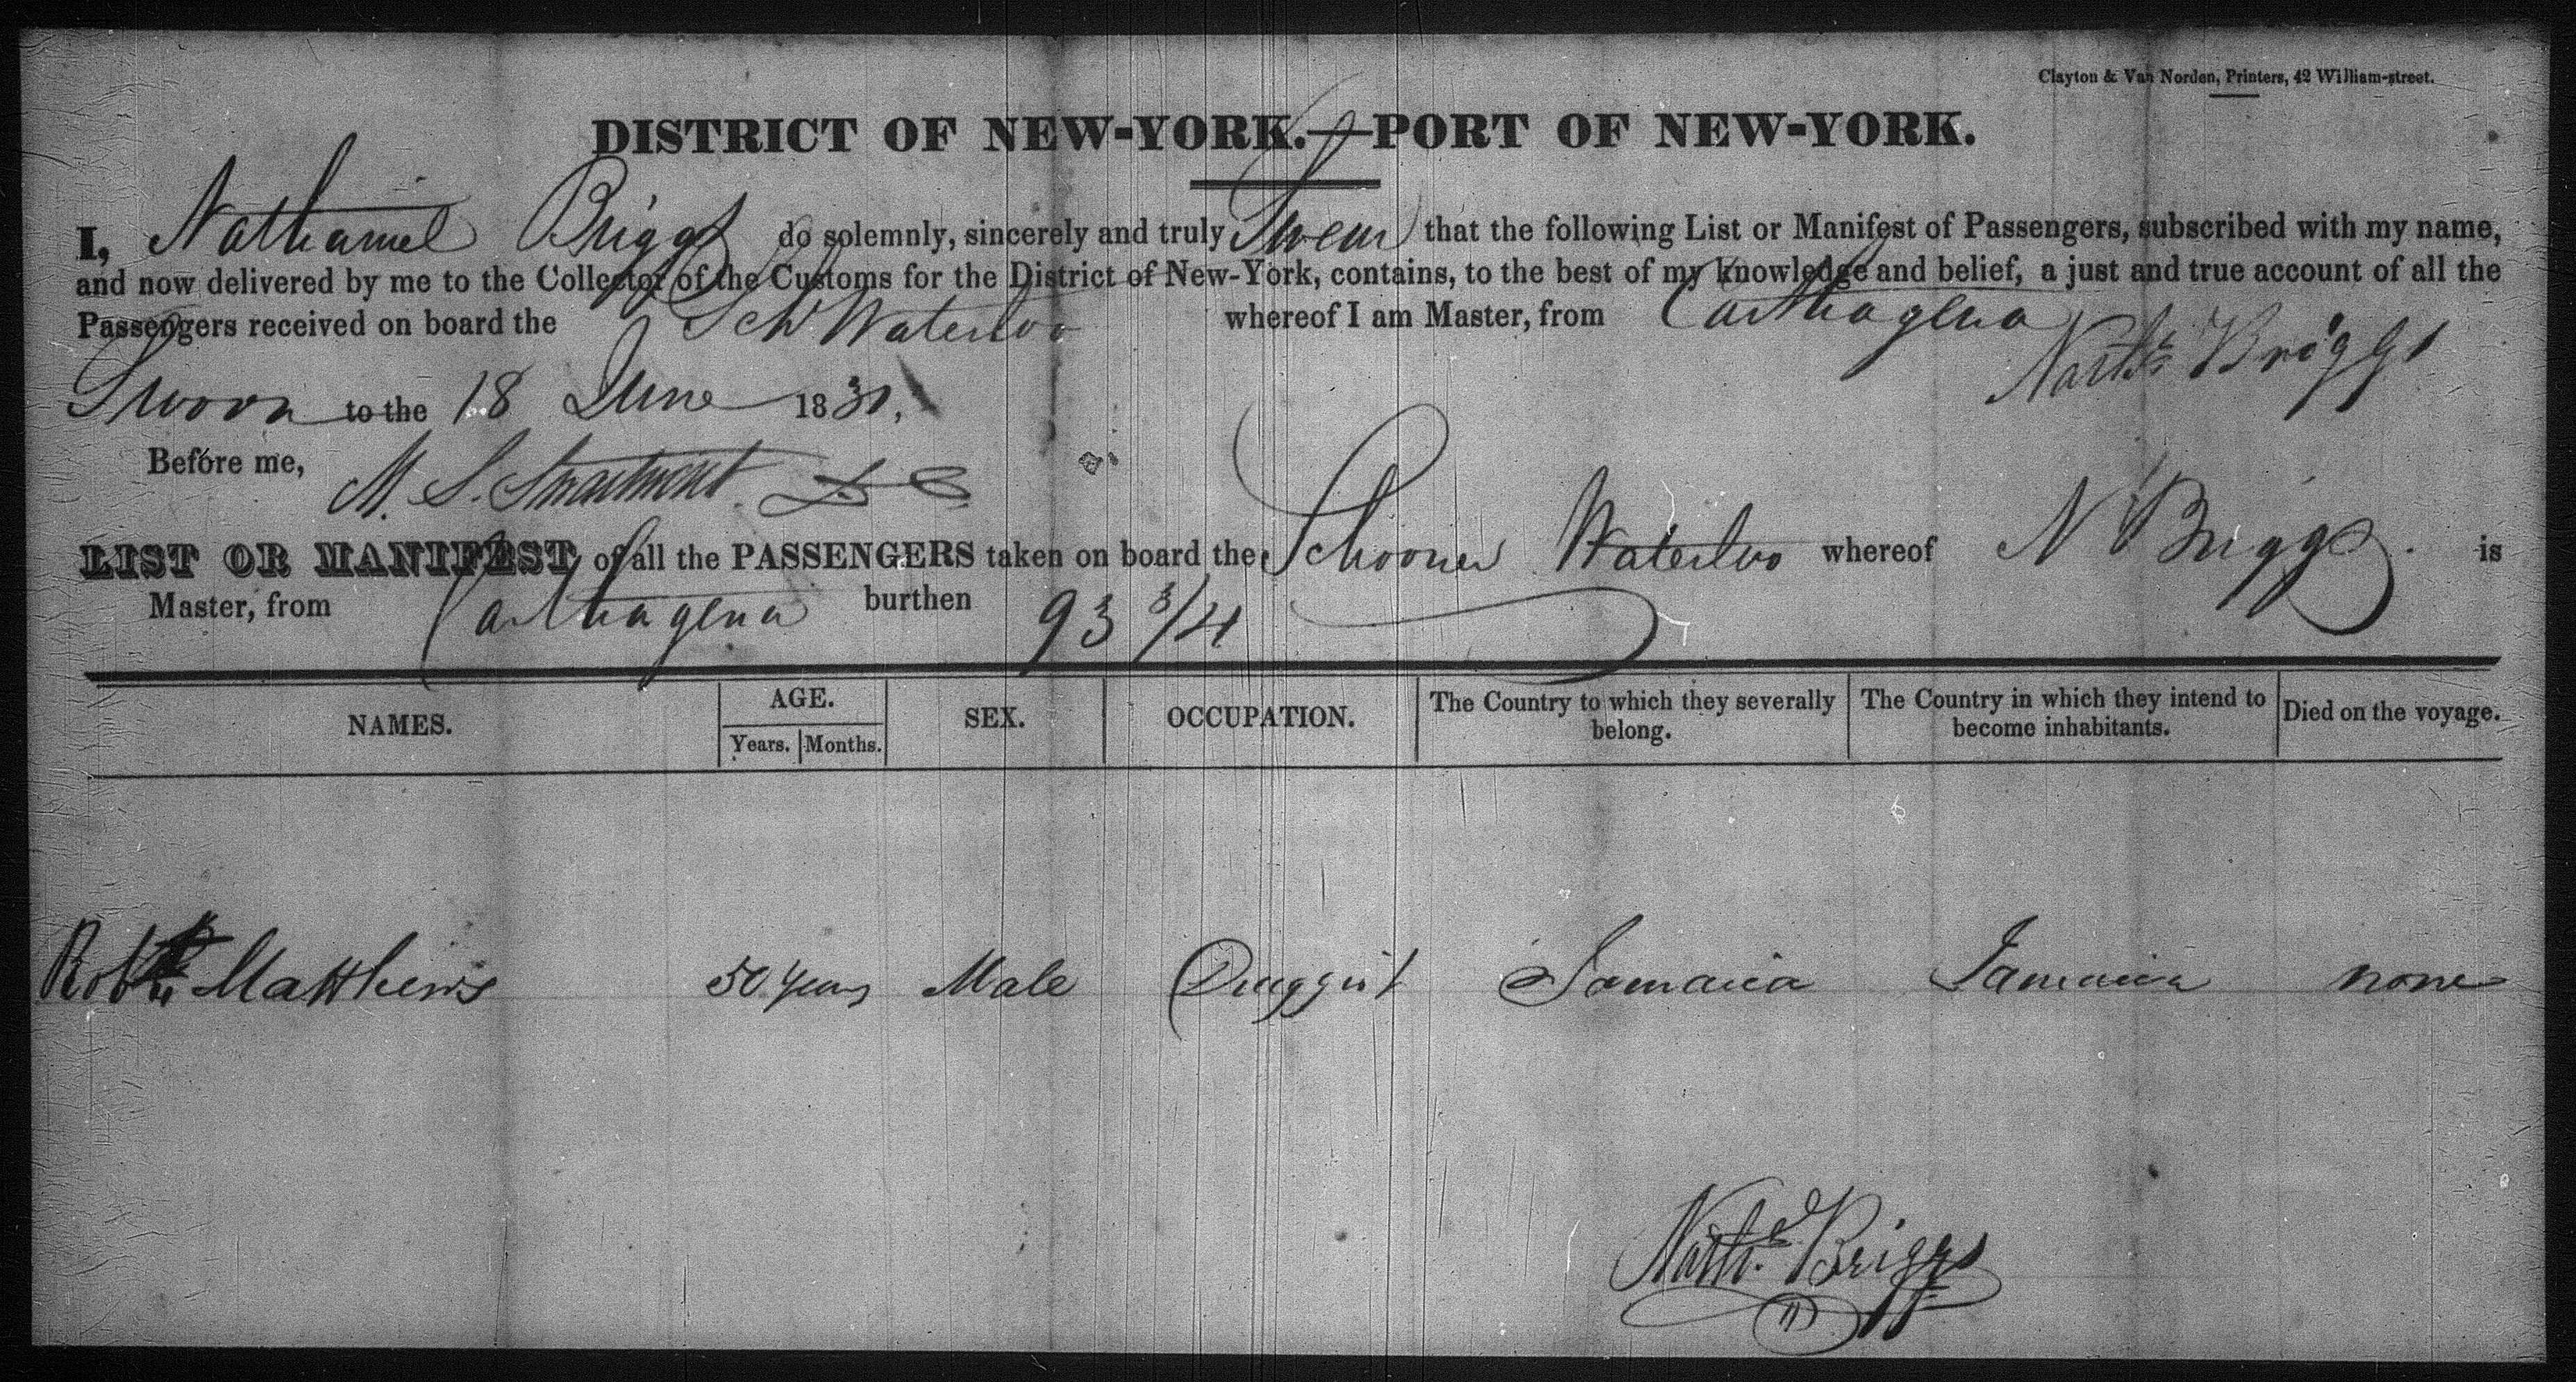 Clayton & Van Norden, Printers, 42 William-street.
DISTRICT OF NEW-YORK.—PORT OF NEW-YORK.
I, Nathaniel Briggs do solemnly, sincerely and truly Swear that the following List or Manifest of Passengers, subscribed with my name,
and now delivered by me to the Collector of the Customs for the District of New-York, contains, to the best of my knowledge and belief, a just and true account of all the
Passengers received on board the Schr Waterloo whereof I am Master, from Carthagena
Nathl Briggs
Sworn to the 18 June 1831,
Before me, M. S.
LIST OR MANIFEST of all the PASSENGERS taken on board the Schooner Waterloo whereof N Briggs. is
Master, from Carthagena burthen 93 3/4
NAMES. AGE. Years. Months. SEX. OCCUPATION. The Country to which they severally belong. The Country in which they intend to become inhabitants. Died on the voyage.
Robt Matthews 50 years Male Druggist Jamaica Jamaica none
Nathl. Briggs